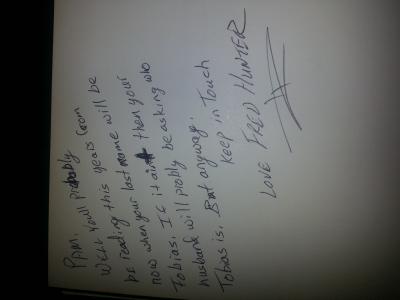 PAM,
WELL youll probably
be reading this years from
now when your last name will be
Tobias. If it aint then your
husband will probly be asking who
Tobias is. But anyway.
Keep in Touch
LOVE FRED HUNTER